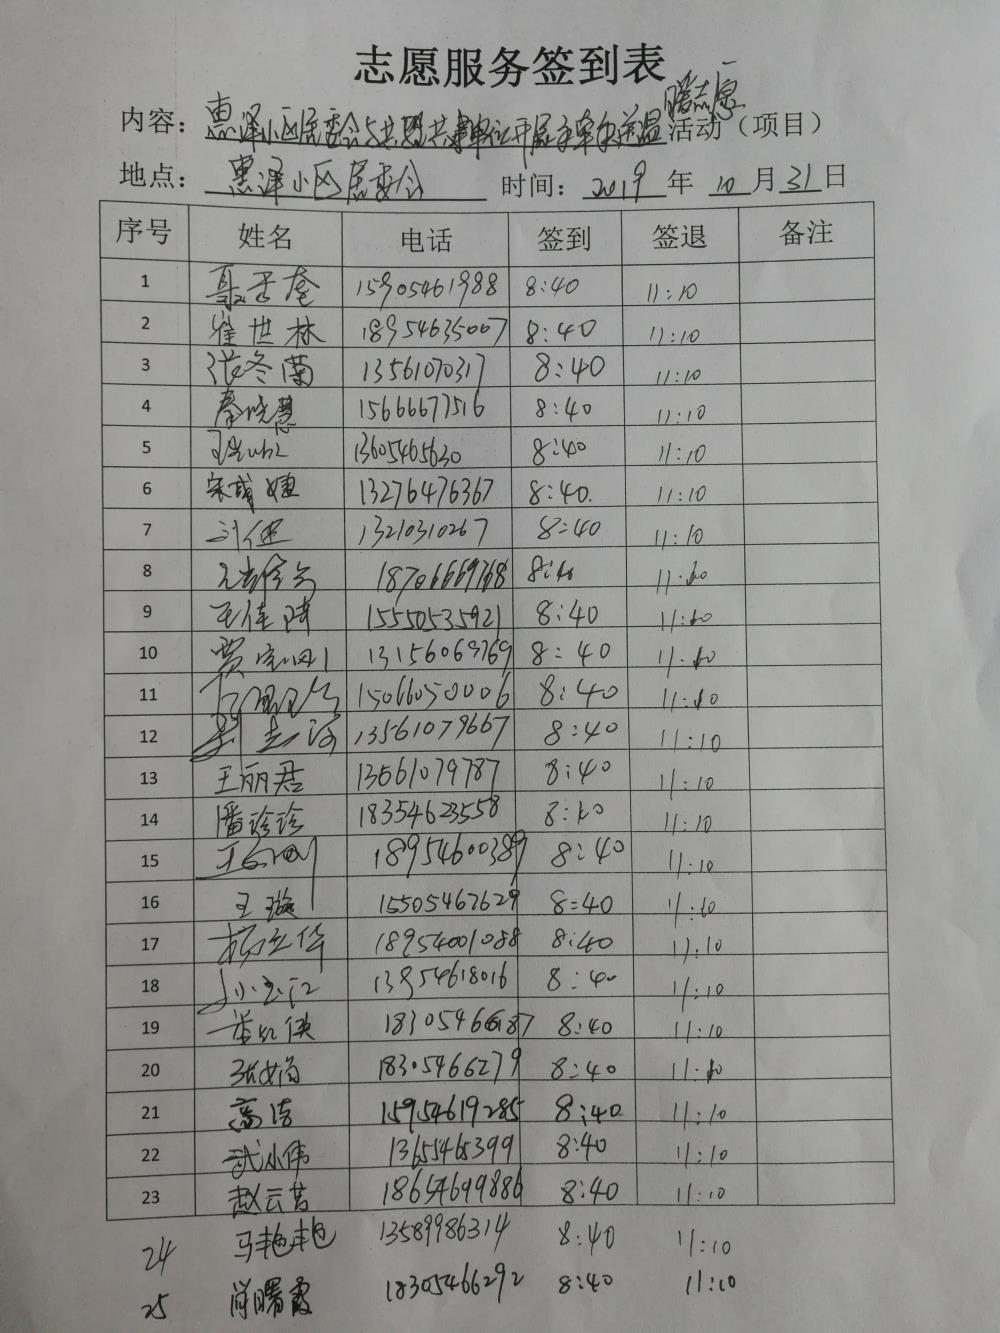 志愿服务签到表
暖志愿
内容：惠泽小区居委会与共盟共建单位开展手牵手送温活动（项目）
地点：惠泽小区居委会 时间：2019年10月31日
序号 姓名 电话 签到 签退 备注
1 15905461988 8:40 11:10
2 崔世林 18954635007 8:40 11:10
3 张冬菊 13561070317 8:40 11:10
4 秦晓慧 15666677516 8:40 11:10
5 13605465630 8:40 11:10
6 宋成婕 13276476367 8:40 11:10
7 刘健 13210310267 8:40 11:10
8 18706669768 8:40 11:10
9 王佳琦 15550535921 8:40 11:10
10 贾 13156069769 8:40 11:10
11 15066050006 8:40 11:10
12 13561079667 8:40 11:10
13 王丽君 13561079787 8:40 11:10
14 潘珍珍 18354623558 8:40 11:10
15 18954600389 8:40 11:10
16 王璇 15505467629 8:40 11:10
17 杨立华 18954001088 8:40 11:10
18 13954618016 8:40 11:10
19 8:40 11:10
20 18305466279 8:40 11:10
21 高洁 15954619285 8:40 11:10
22 武小伟 13655465399 8:40 11:10
23 赵云芳 18654699886 8:40 11:10
24 马艳艳 13589986314 8:40 11:10
25 肖曙霞 18305466292 8:40 11:10